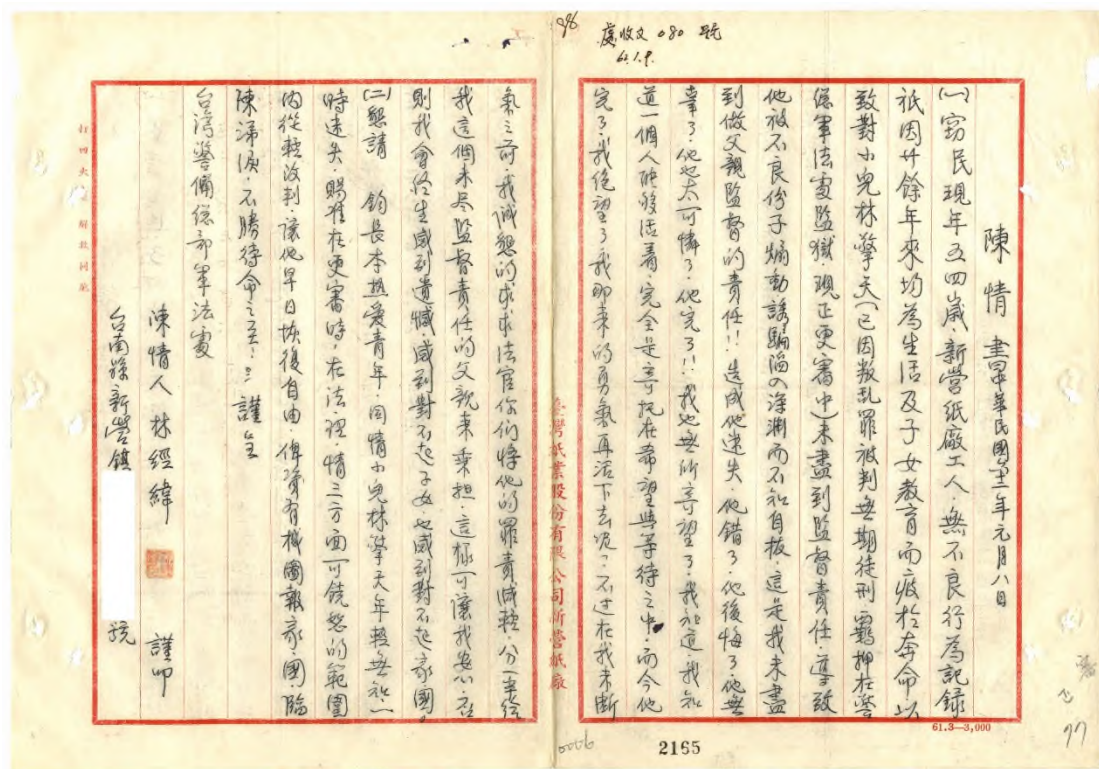 98
處收文 080 號
62.1.9.
陳情書 中華民國六十二年元月八日
(一)竊民現年五四歲．新營紙廠工人．無不良行為記錄
祇因廿餘年來均為生活及子女教育而疲於奔命以
致對小兒林擎天(已因叛乱罪被判無期徒刑羈押在警
總軍法處監獄．現正更審中)未盡到監督責任．導致
他被不良份子煽動誘騙陷入深淵而不知自拔．這是我未盡
到做父親監督的責任!!造成他迷失．他錯了．他後悔了．他無
辜了．他也太可憐了．他完了!!我也無所寄望了．我知道我知
道一個人能够活着．完全是寄托在希望與等待之中．而今他
完了．我絕望了我那来的勇氣再活下去呢？不过在我未断
氣之前．我誠懇的求求法官你们將他的罪責減輕．分一半给
我這個未尽監督責任的父親来乘担．這樣可讓我安心．否
則我會終生感到遺憾感到對不起子女也感到對不起家國。
(二)懇請 鈞長本热爱青年．同情小兒林擎天年輕無知一
時迷失．賜准在更審時．在法．理．情三方面可饒恕的範圍
内從輕改判．讓他早日恢復自由．俾資有機圖報家．國．臨
陳涕淚．不勝待命之至：：謹呈
台湾警備總部軍法處
陳情人 林經緯 謹叩
台南縣新營鎮 號
臺灣紙業股份有限公司新營紙廠
61.3—3,000
2165
0006
97